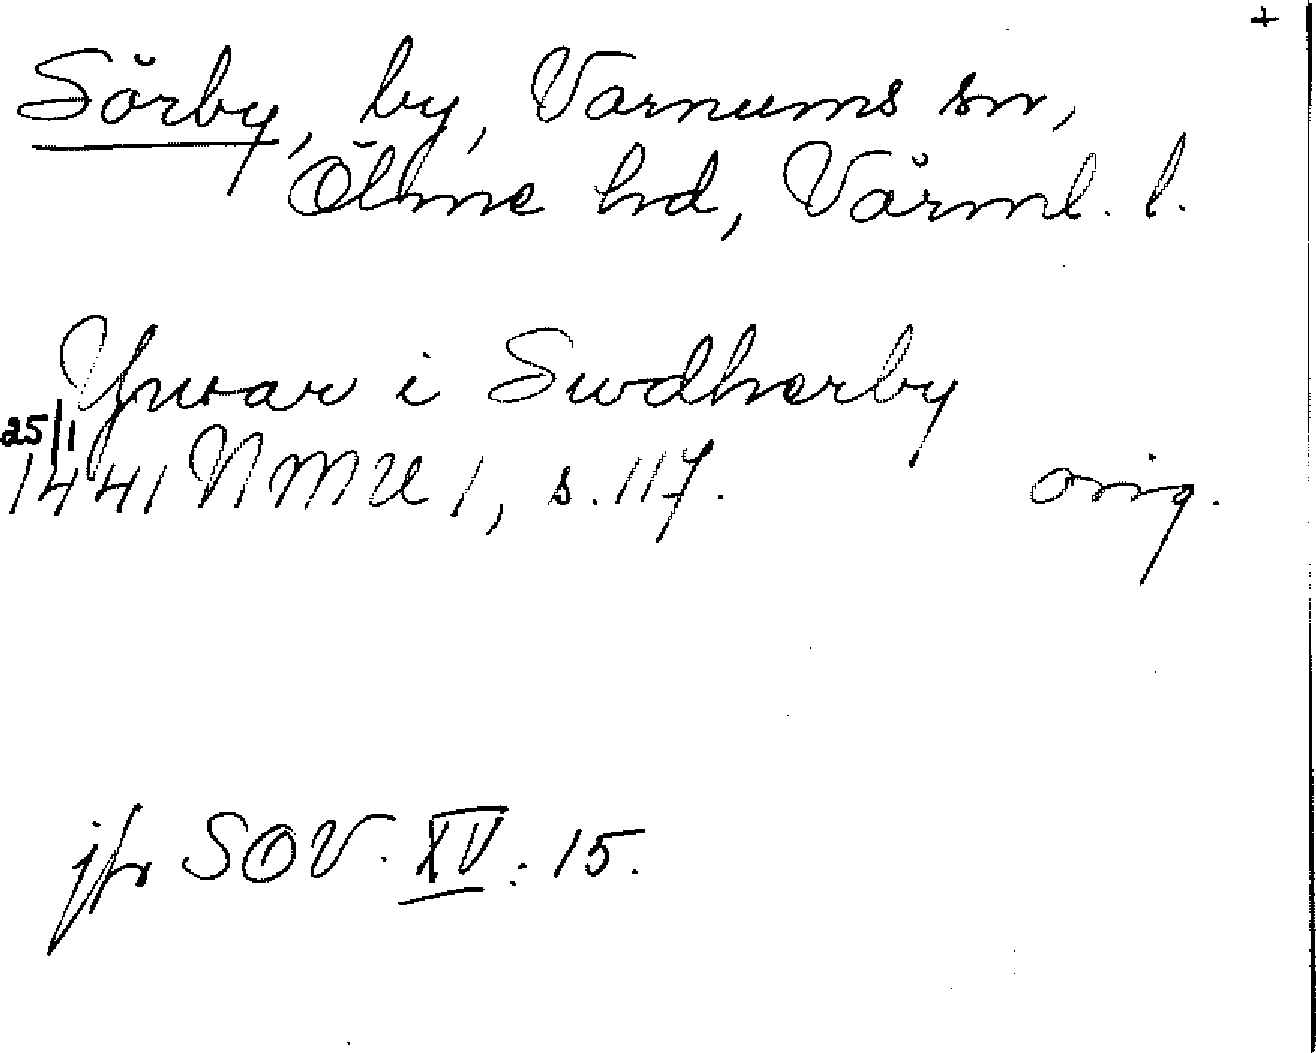 +
Sörby, by, Varnums sn,
Ölme hd, Värml. l.
Ywar i Swdherby
25/1
1441 NMU 1, s. 117. orig.
jfr SOV. XV: 15.